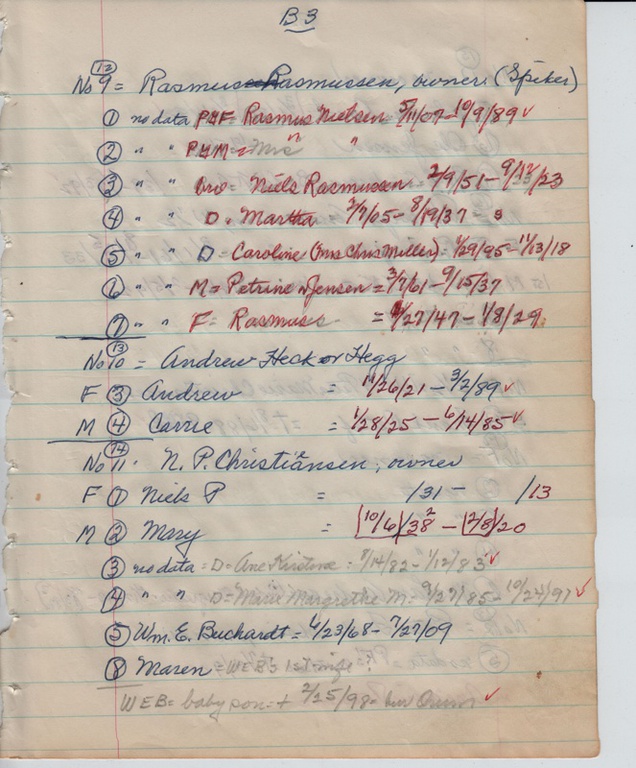 B3
No 9 (12) = Rasmus Rasmussen, owner. (Spiker)
(1) no data P.H.F = Rasmus Nielsen = 5/11/07 - 10/9/89 ✓
(2) " " P.H.M = Mrs " "
(3) " " bro = Niels Rasmussen = 2/9/51 - /23
(4) " " D = Martha 2/7/05 - 8/19/37
(5) " " D = Caroline (Mrs Chris Miller) = 1/29/95 - 11/13/18
(6) " " M = Petrine Jensen = 3/7/61 - 9/15/37
(7) " " F = Rasmus = /27/47 - 1/8/29
No 10 (13) = Andrew Heck or Hegg
F (3) Andrew = 11/26/21 - 3/2/89 ✓
M (4) Carrie = 1/28/25 - 6/14/85 ✓
No 11 (14). N. P. Christiansen, owner
F (1) Niels P = /31 - /13
M (2) Mary = (10/6)/38 - (2/8)/20
(3) no data = D = Ane Kirstine = 8/14/82 - 1/12/83 ✓
(4) " " D = Marie Margrethe M = 9/27/85 - 10/24/97 ✓
(5) Wm. E. Buchardt = 6/23/68 - 7/27/09
(8) Maren = WEB's 1st wife
WEB = baby son = + 2/25/98 =